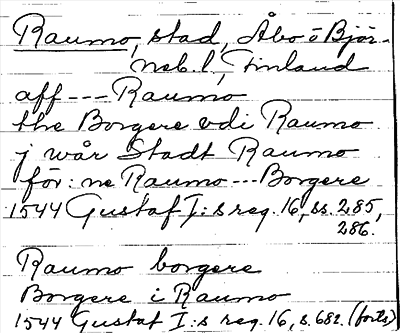 Raumo, stad, Åbo o Björ-
neb. l, Finland
aff --- Raumo
the Borgere vdi Raumo
j wår Stadt Raumo
för: ne Raumo --- Borgere
1544 Gustaf I:s reg. 16, ss. 285,
286.
Raumo borgere
Borgere i Raumo
1544 Gustaf I:s reg. 16, s. 682 (forts)